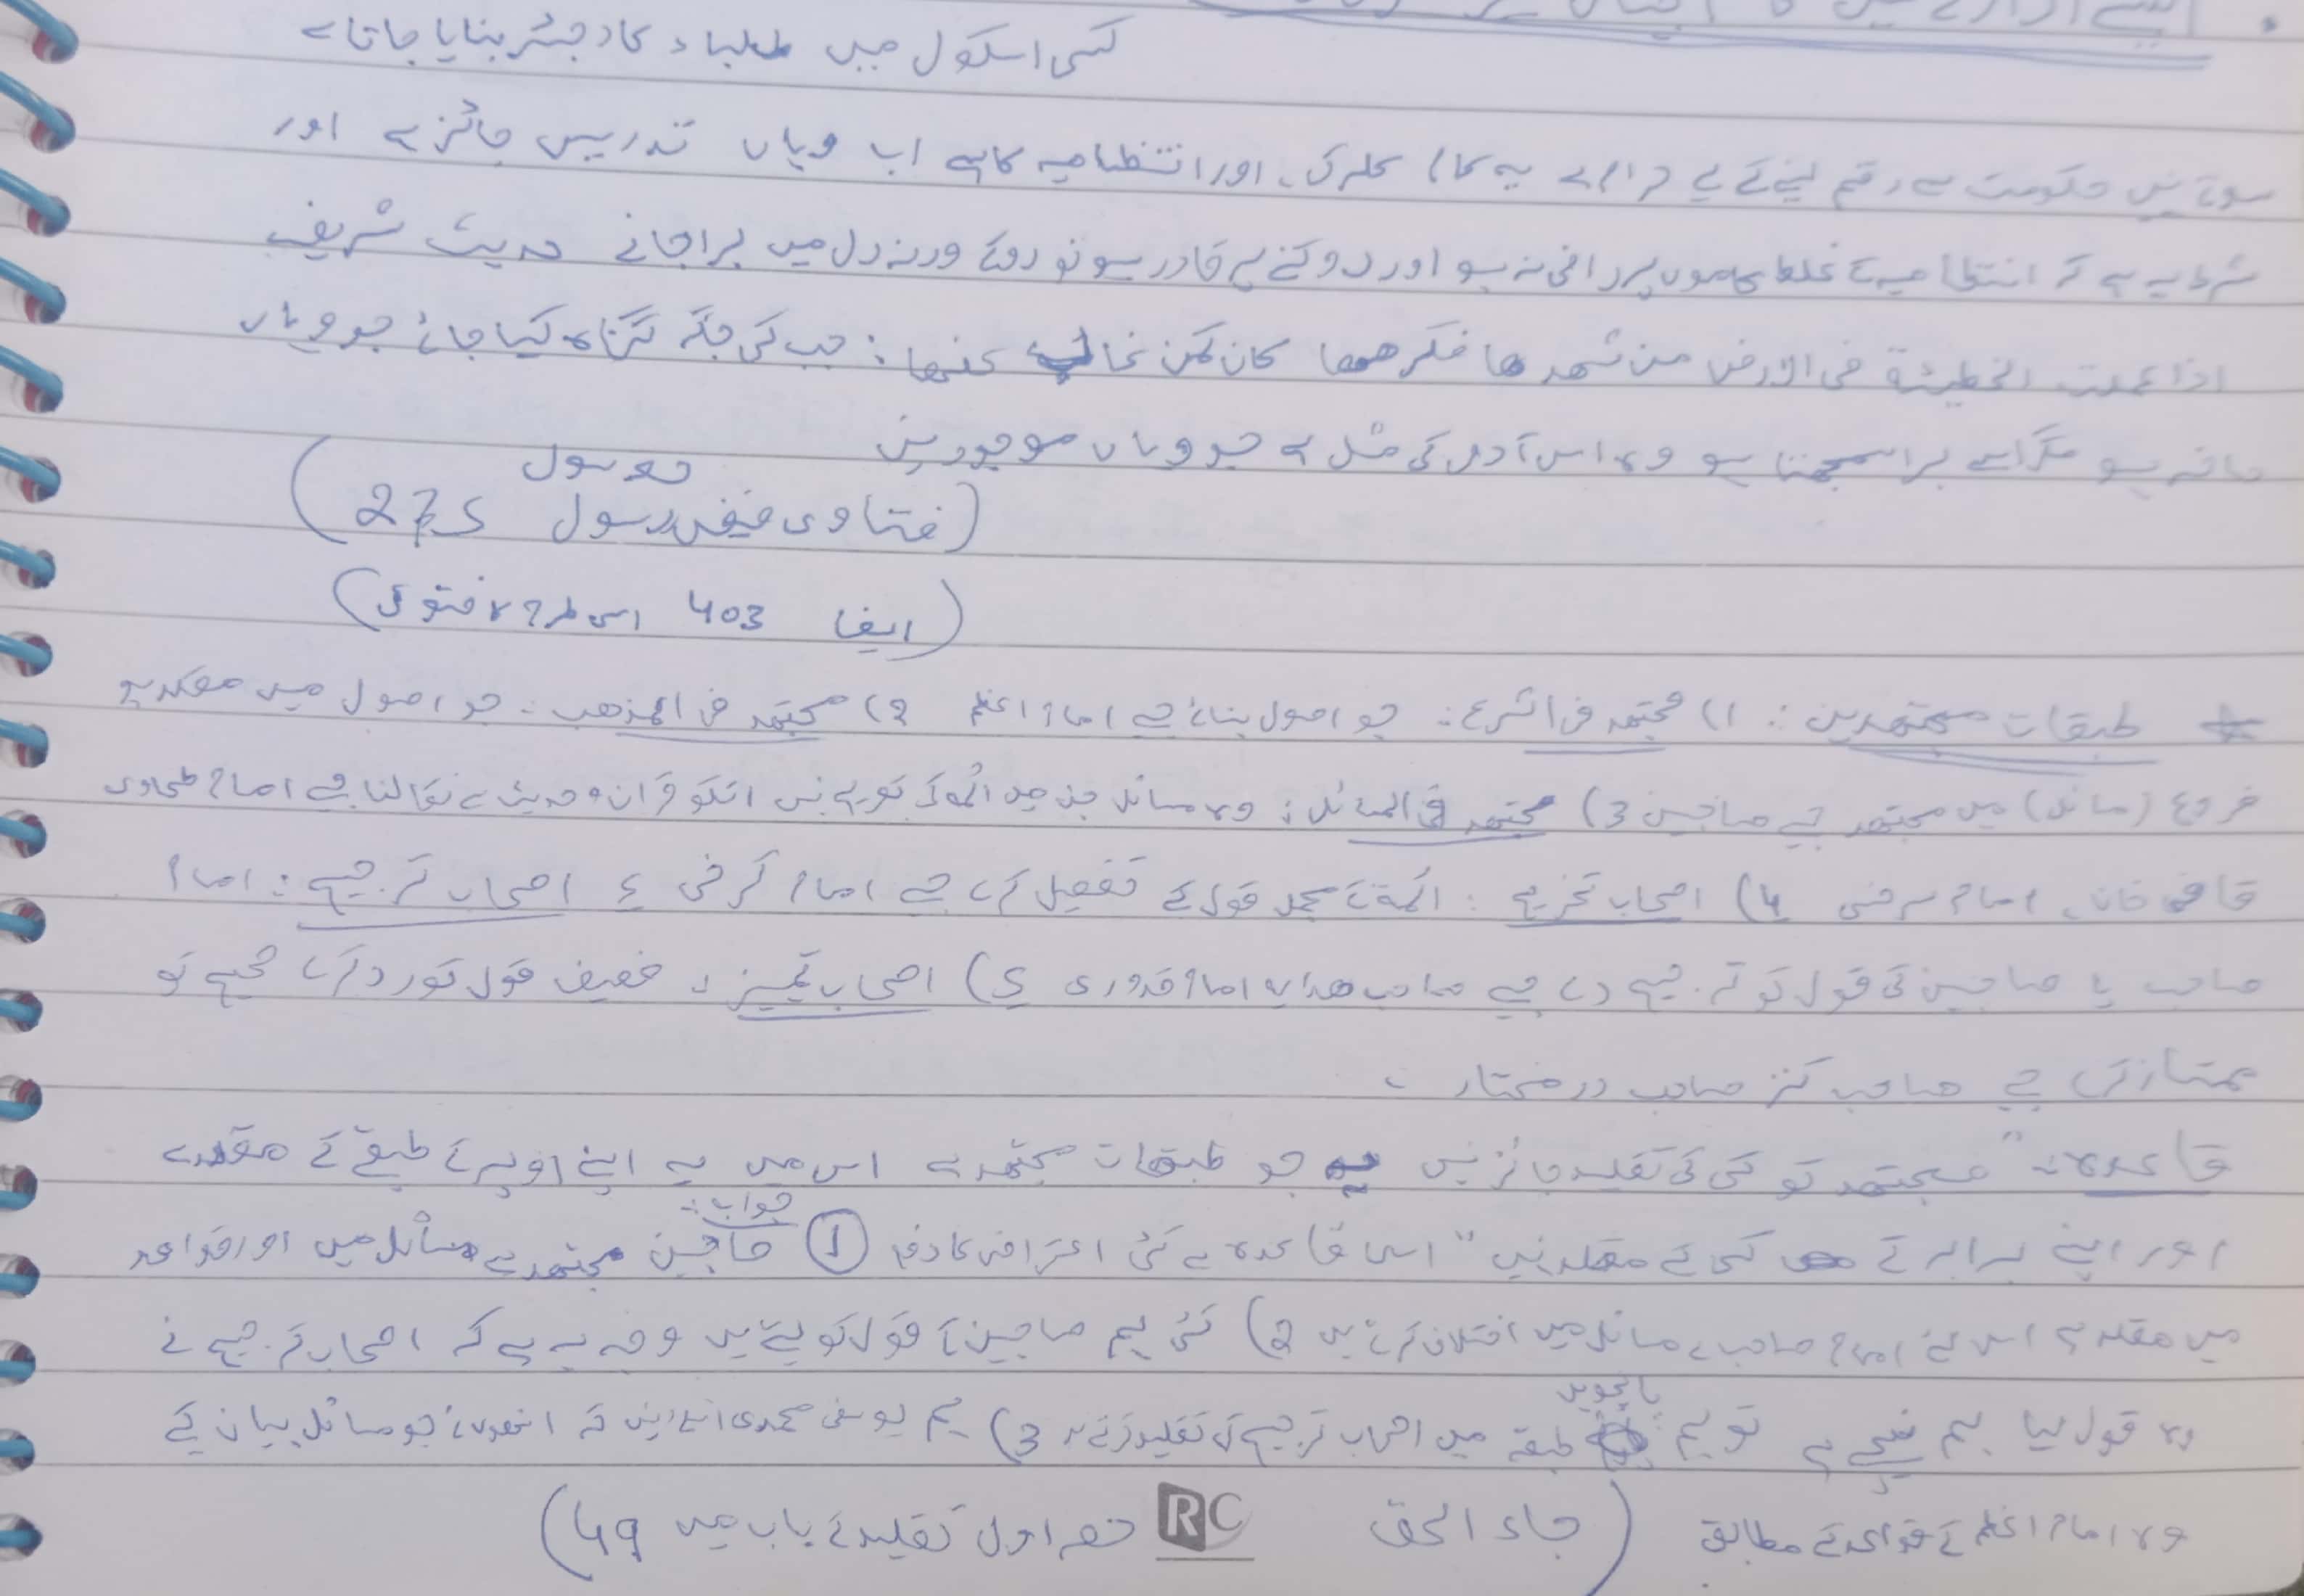 کسی اسکول میں طلباء کا رجسٹر بنایا جاتا ہے
حکومت سے رقم لینے کے لیے حرام ہے یہ کام کلرک، اور انتظامیہ کا ہے اب وہاں تدریس جائز ہے اور
شرط یہ ہے کہ انتظامیہ کے غلط کاموں پر راضی نہ ہو اور روکنے پر قادر ہو تو روکے ورنہ دل میں برا جانے حدیث شریف
اذا عملت الخطیئة فی الارض من شھدھا فکرھھا کان کمن غاب عنھا: جب کسی جگہ گناہ کیا جائے جو وہاں
حاضر ہو مگر اسے برا سمجھتا ہو وہ اس آدمی کی مثل ہے جو وہاں موجود نہیں
(فتاوی فیض رسول 275)
(ایضا 403 اسی طرح کا فتوی)
طبقات مجتھدین: 1) مجتھد فی الشرع: جو اصول بنائے جیسے امام اعظم 2) مجتھد فی المذھب: جو اصول میں مقلد ہو
فروع (مسائل) میں مجتھد جیسے صاحبین 3) مجتھد فی المسائل: وہ مسائل جن میں ائمہ کی تصریح نہیں انکو قرآن و حدیث سے نکالنا جیسے امام طحاوی
قاضی خان، امام سرخسی 4) اصحاب تخریج: ائمہ کے مجمل قول کی تفصیل کرے جیسے امام کرخی 5 اصحاب ترجیح: امام
صاحب یا صاحبین کی قول کو ترجیح دے جیسے صاحب ھدایہ امام قدوری 6) اصحاب تمییز: ضعیف قول کو رد کرے صحیح کو
ممتاز کرے جیسے صاحب کنز صاحب در مختار
قاعدہ: "مجتھد کو کسی کی تقلید جائز نہیں جو طبقات مجتھد ہے اس میں یہ اپنے اوپر کے طبقے کے مقلد ہے
اور اپنے برابر کے کسی کے مقلد نہیں" اس قاعدہ سے کئی اعتراض کا دفع ① جواب: صاحبین مجتھد ہے مسائل میں اور قواعد
میں مقلد ہے اس لئے امام صاحب سے مسائل میں اختلاف کرتے ہیں 2) کئی ہم صاحبین کے قول کو لیتے ہیں وجہ یہ ہے کہ اصحاب ترجیح نے
وہ قول لیا ہم نیچے ہے تو ہم پانچویں طبقہ میں اصحاب ترجیح کی تقلید کرتے 3) ہم یوسفی محمدی اس لئے نہیں کہ انھوں نے جو مسائل بیان کیے
وہ امام اعظم کے قواعد کے مطابق (جاء الحق حصہ اول تقلید کے باب میں 49)
RC